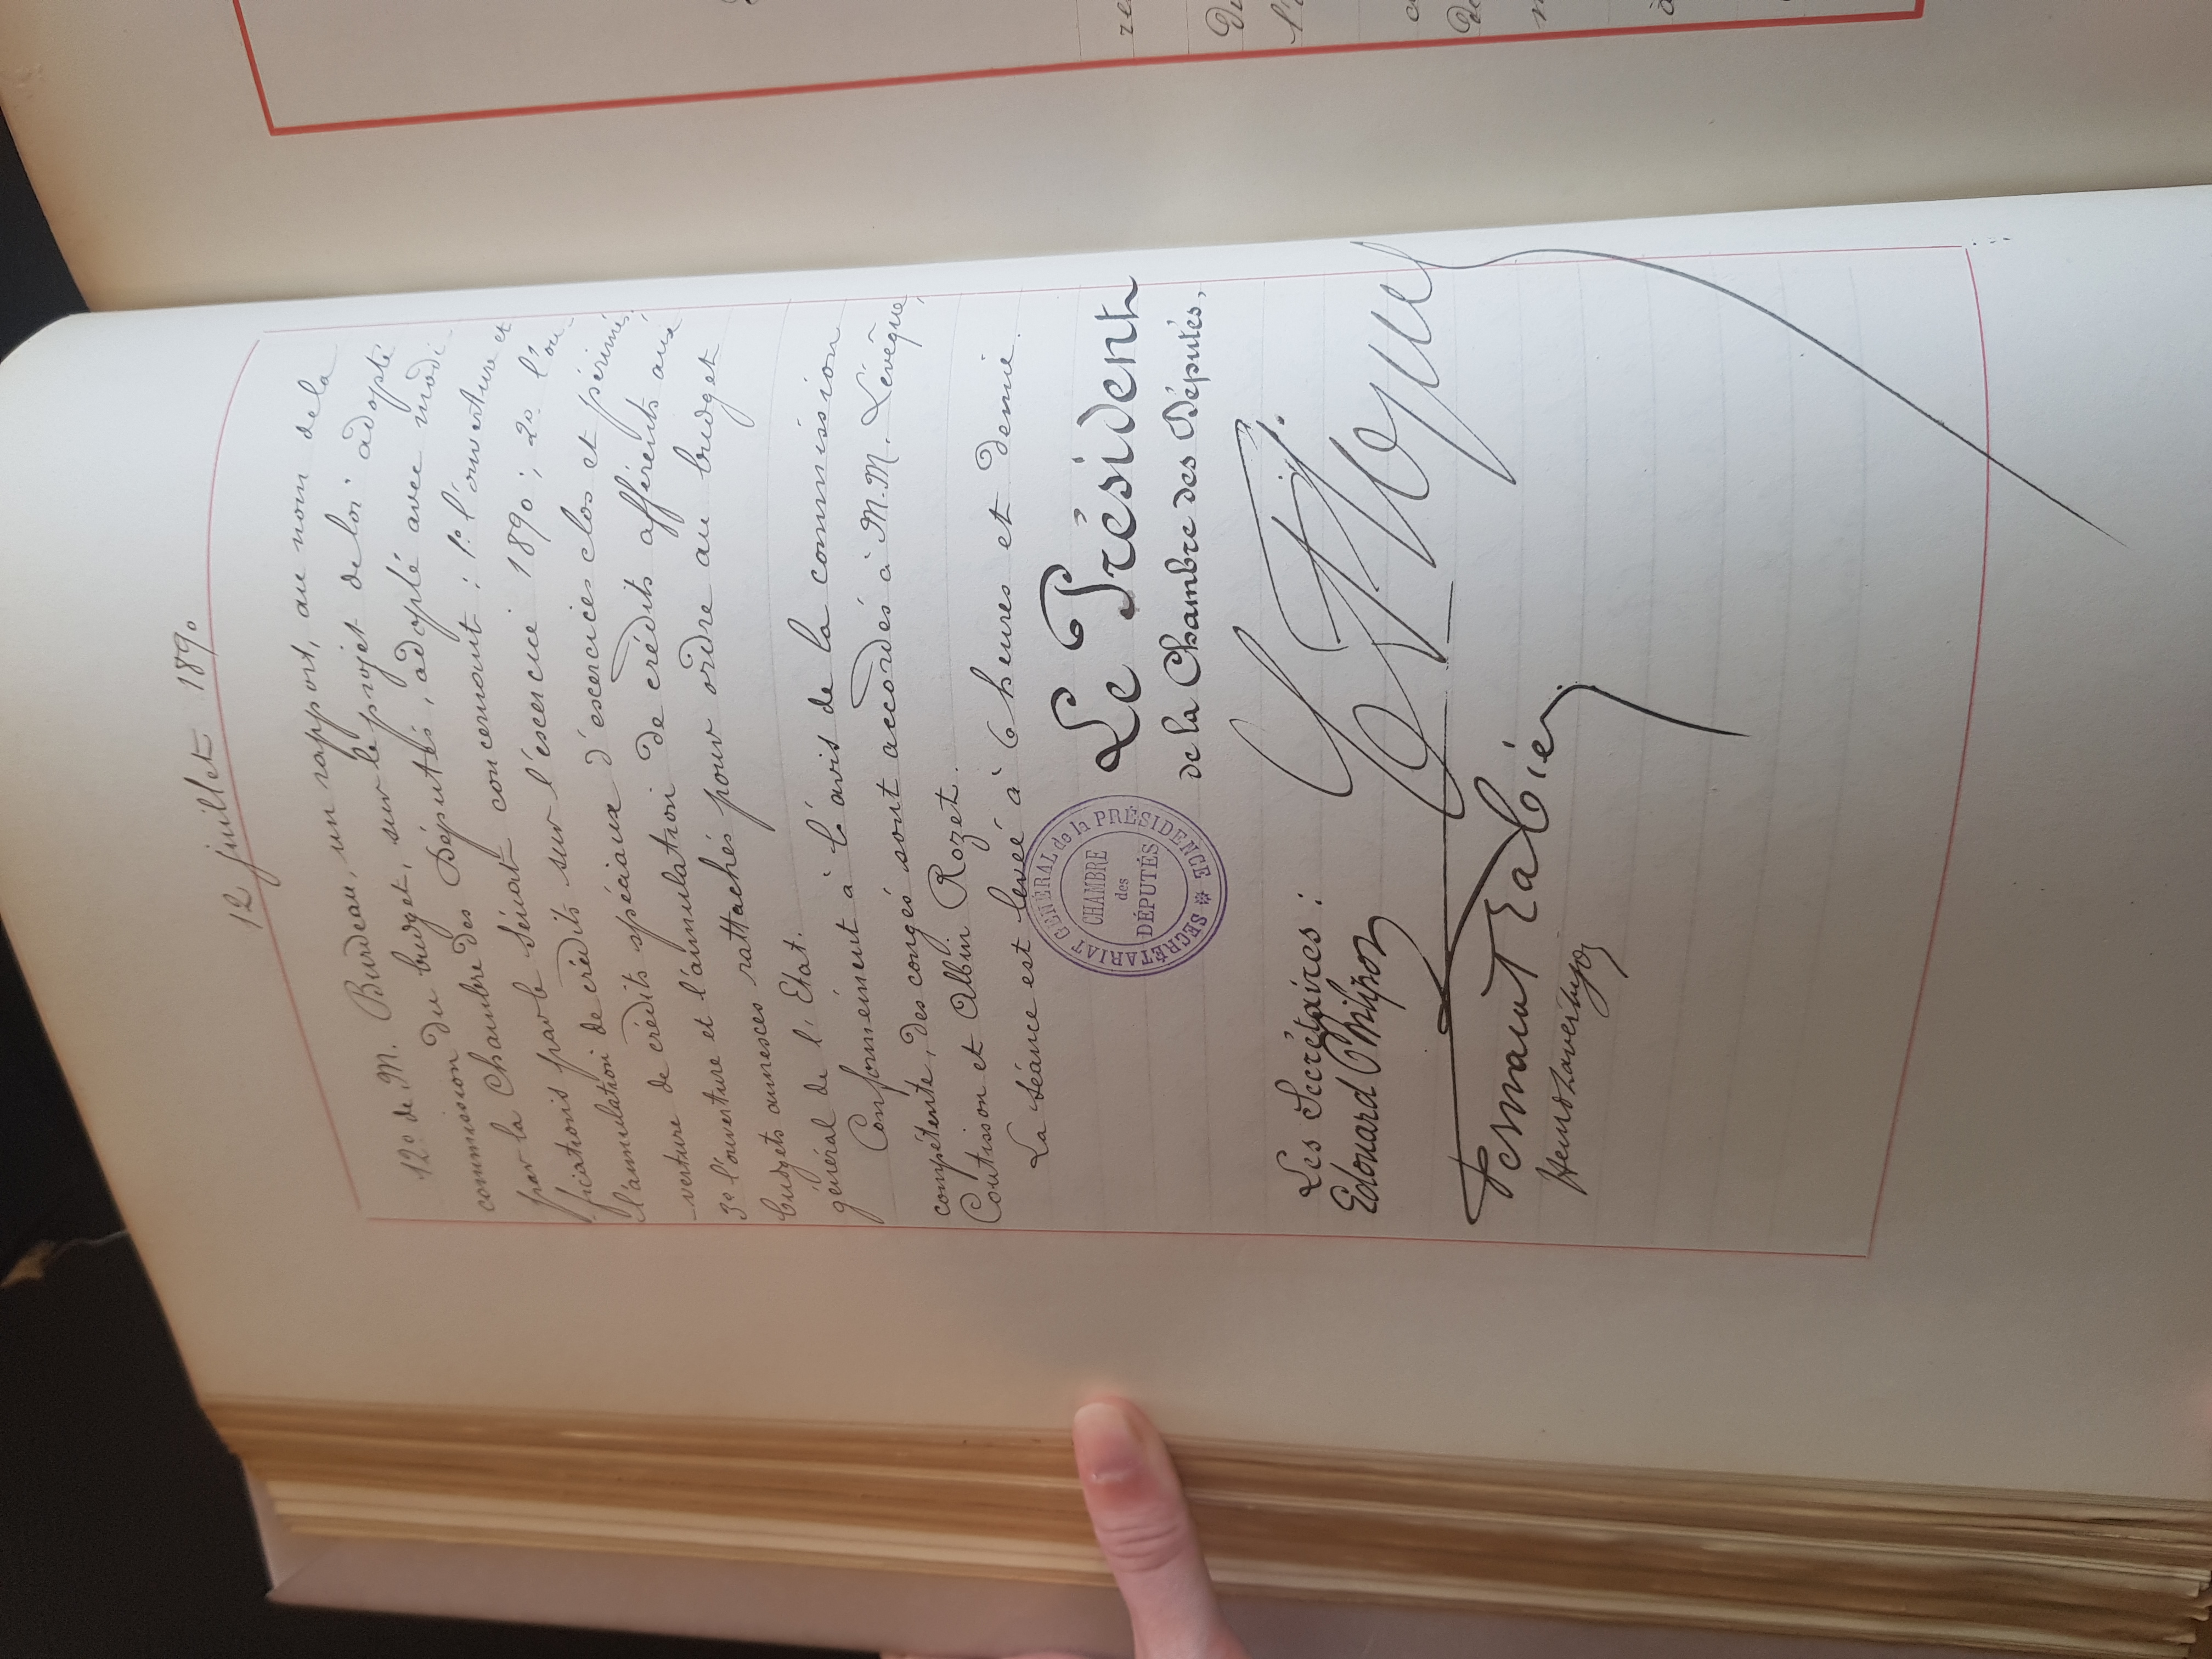 12 juillet 1890
12o de M. Burdeau, un rapport, au nom de la
commission du budget, sur le projet de loi adopté
par la Chambre des Députés, adopté avec modi-
fications par le Sénat concernant : 1o l'ouverture et
l'annulation de crédits sur l'exercice 1890 ; 2o l'ou-
verture de crédits spéciaux d'exercices clos et périmés
3o l'ouverture et l'annulation de crédits afférents aux
budgets annexes rattachés pour ordre au budget
général de l'Etat.
Conformément à l'avis de la commission
compétente, des congés sont accordés à M.M. Levêque,
Coutisson et Albin Rozet.
La séance est levée à 6 heures et demie.
Le Président
de la Chambre des Députés,
SECRÉTARIAT GÉNÉRAL de la PRÉSIDENCE
CHAMBRE
des
DÉPUTÉS
Les Secrétaires :
Edouard Philipon
Fernand Rabier